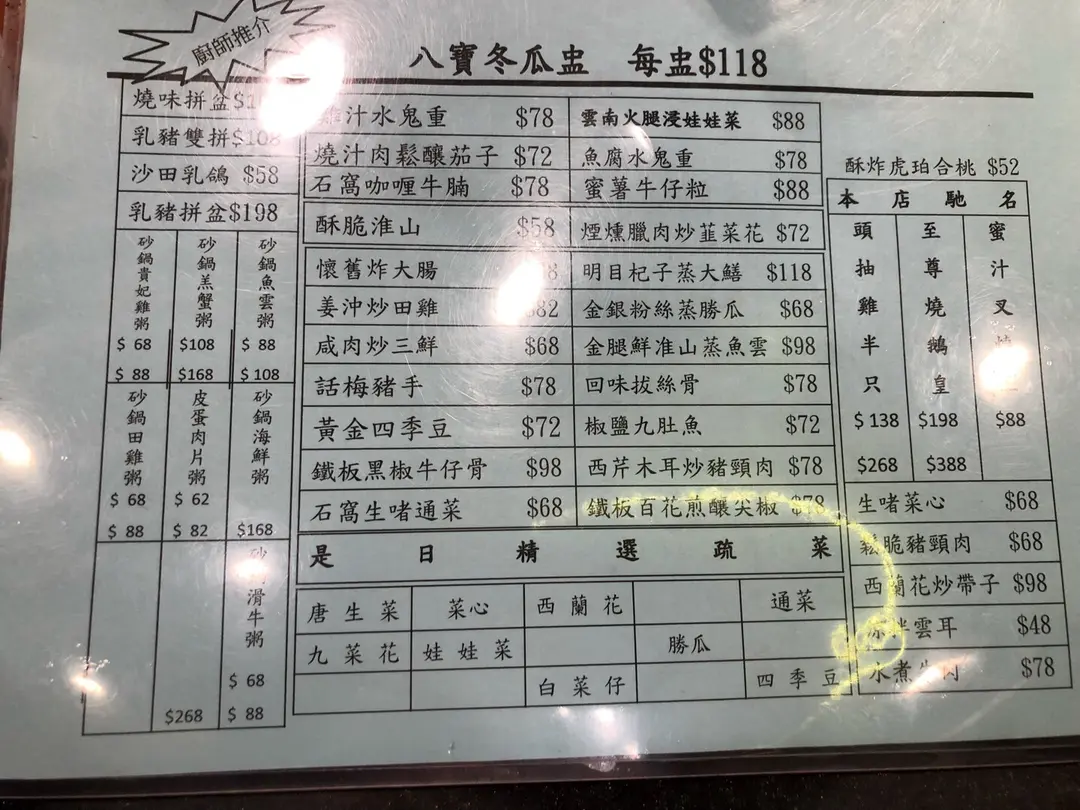 廚師推介
八寶冬瓜盅 每盅$118
燒味拼盆
乳豬雙拼$108
沙田乳鴿 $58
乳豬拼盆$198
砂鍋貴妃雞粥 $68 $88
砂鍋羔蟹粥 $108 $168
砂鍋魚雲粥 $88 $108
砂鍋田雞粥 $68 $88
皮蛋肉片粥 $62 $82
砂鍋海鮮粥 $168
$268
滑牛粥 $68 $88
汁水鬼重 $78
燒汁肉鬆釀茄子 $72
石窩咖喱牛腩 $78
酥脆淮山 $58
懷舊炸大腸
姜沖炒田雞
咸肉炒三鮮 $68
話梅豬手 $78
黃金四季豆 $72
鐵板黑椒牛仔骨 $98
石窩生啫通菜 $68
雲南火腿浸娃娃菜 $88
魚腐水鬼重 $78
蜜薯牛仔粒 $88
煙燻臘肉炒韮菜花 $72
明目杞子蒸大鱔 $118
金銀粉絲蒸勝瓜 $68
金腿鮮淮山蒸魚雲 $98
回味拔絲骨 $78
椒鹽九肚魚 $72
西芹木耳炒豬頸肉 $78
鐵板百花煎釀尖椒 $78
是日精選疏菜
唐生菜 菜心 西蘭花 通菜
九菜花 娃娃菜 勝瓜
白菜仔 四季豆
酥炸虎珀合桃 $52
本店馳名
頭抽雞半只 $138 $268
至尊燒鵝皇 $198 $388
蜜汁叉 $88
生啫菜心 $68
鬆脆豬頸肉 $68
西蘭花炒帶子 $98
雲耳 $48
水煮牛肉 $78